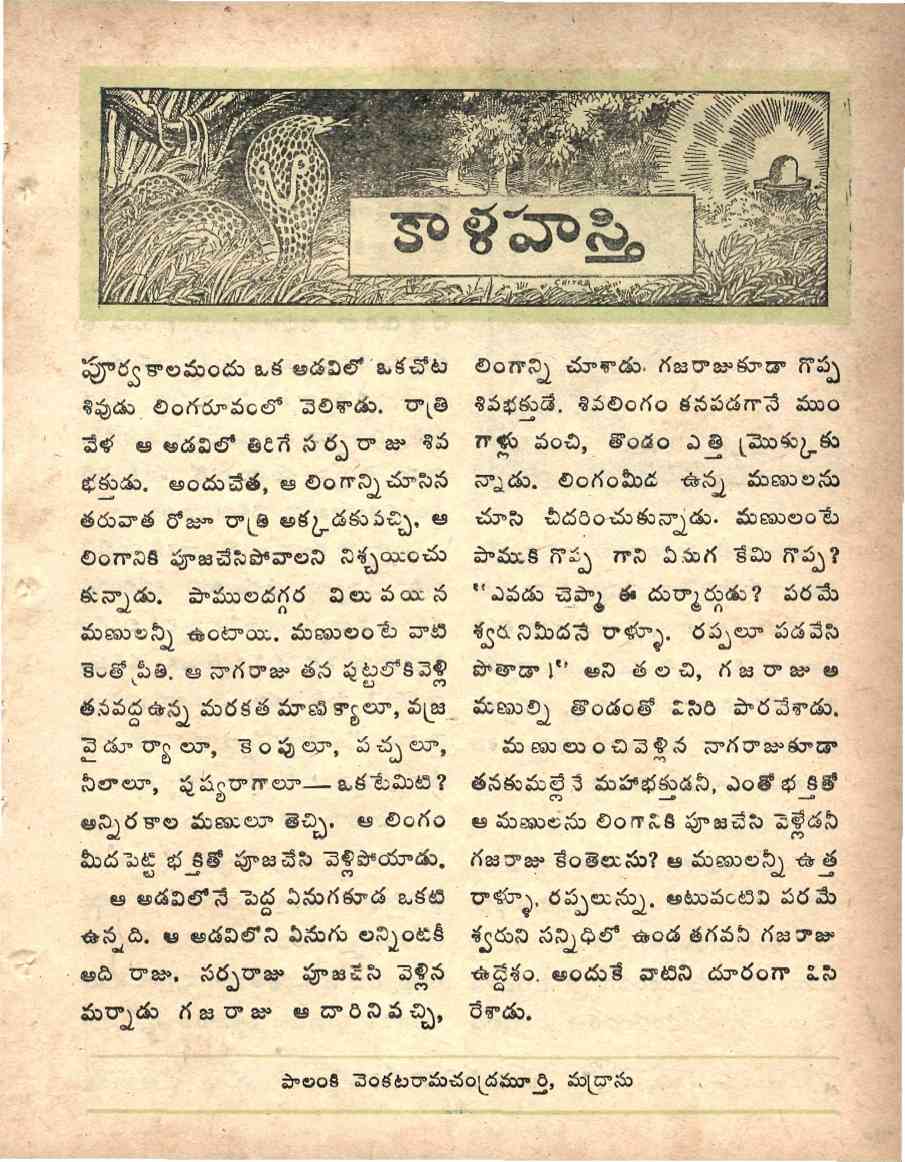 కాళహస్తి
CHITRA
పూర్వకాలమందు ఒక అడవిలో ఒకచోట
శివుడు లింగరూపంలో వెలిశాడు. రాత్రి
వేళ ఆ అడవిలో తిరిగే సర్పరాజు శివ
భక్తుడు. అందుచేత, ఆ లింగాన్నిచూసిన
తరువాత రోజూ రాత్రి అక్కడకువచ్చి, ఆ
లింగానికి పూజచేసిపోవాలని నిశ్చయించు
కున్నాడు. పాములదగ్గర విలువయిన
మణులన్నీ ఉంటాయి. మణులంటే వాటి
కెంతో ప్రీతి. ఆ నాగరాజు తన పుట్టలోకివెళ్లి
తనవద్దఉన్న మరకత మాణిక్యాలూ, వజ్ర
వైడూర్యాలూ, కెంపులూ, పచ్చలూ,
నీలాలూ, పుష్యరాగాలూ—ఒకటేమిటి?
అన్నిరకాల మణులూ తెచ్చి, ఆ లింగం
మీదపెట్టి భక్తితో పూజచేసి వెళ్లిపోయాడు.
ఆ అడవిలోనే పెద్ద ఏనుగకూడ ఒకటి
ఉన్నది. ఆ అడవిలోని ఏనుగు లన్నింటికీ
అది రాజు. సర్పరాజు పూజచేసి వెళ్లిన
మర్నాడు గజరాజు ఆ దారినివచ్చి,
లింగాన్ని చూశాడు. గజరాజుకూడా గొప్ప
శివభక్తుడే. శివలింగం కనపడగానే ముం
గాళ్లు వంచి, తొండం ఎత్తి మ్రొక్కుకు
న్నాడు. లింగంమీద ఉన్న మణులను
చూసి చీదరించుకున్నాడు. మణులంటే
పాముకి గొప్ప గాని ఏనుగ కేమి గొప్ప?
“ఎవడు చెప్మా ఈ దుర్మార్గుడు? పరమే
శ్వరునిమీదనే రాళ్ళూ, రప్పలూ పడవేసి
పోతాడా!” అని తలచి, గజరాజు ఆ
మణుల్ని తొండంతో విసిరి పారవేశాడు.
మణులుంచివెళ్లిన నాగరాజుకూడా
తనకుమల్లేనే మహాభక్తుడనీ, ఎంతో భక్తితో
ఆ మణులను లింగానికి పూజచేసి వెళ్లేడనీ
గజరాజు కేంతెలుసు? ఆ మణులన్నీ ఉత్త
రాళ్ళూ, రప్పలున్ను. అటువంటివి పరమే
శ్వరుని సన్నిధిలో ఉండ తగవనీ గజరాజు
ఉద్దేశం. అందుకే వాటిని దూరంగా విసి
రేశాడు.
పాలంకి వెంకటరామచంద్రమూర్తి, మద్రాసు